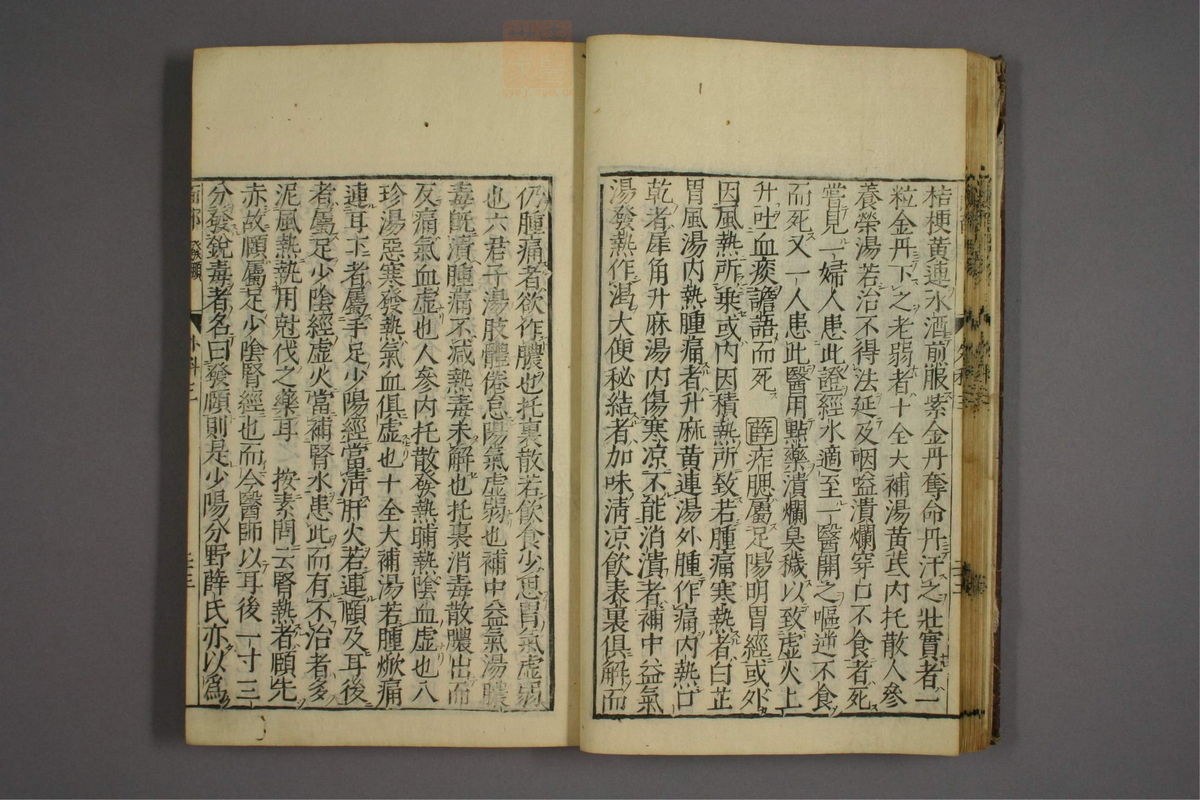 桔梗黃連水酒煎服紫金丹奪命丹汗之壯實者一
粒金丹下之老弱者十全大補湯黃芪內托散人參
養榮湯若治不得法延及咽嗌潰爛穿口不食者死
嘗見一婦人患此證經水適至一醫開之嘔逆不食
而死又一人患此醫用點藥潰爛臭穢以致虛火上
升吐血痰譫語而死 薛 痄腮屬足陽明胃經或外
因風熱所乘或內因積熱所致若腫痛寒熱者白芷
胃風湯內熱腫痛者升麻黃連湯外腫作痛內熱口
乾者犀角升麻湯內傷寒凉不能消潰者補中益氣
湯發熱作渴大便秘結者加味清凉飲表裏俱解而
仍腫痛者欲作膿也托裏散若飲食少思胃氣虛弱
也六君子湯肢體倦怠陽氣虛弱也補中益氣湯膿
毒旣潰腫痛不減熱毒未解也托裏消毒散膿出而
反痛氣血虛也人參內托散發熱晡熱陰血虛也八
珍湯惡寒發熱氣血俱虛也十全大補湯若腫焮痛
連耳下者屬手足少陽經當淸肝火若連頤及耳後
者屬足少陰經虛火當補腎水患此而有不治者多
泥風熱執用尅伐之藥耳 按素問云腎熱者頤先
赤故頤屬足少陰腎經也而今醫師以耳後一寸三
分發銳毒者名曰發頤則是少陽分野薛氏亦以爲
面部 發頤 外科二